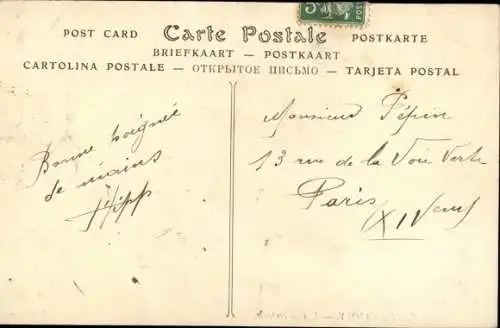 POST CARD Carte Postale POSTKARTE
BRIEFKAART — POSTKAART
CARTOLINA POSTALE — ОТКРЫТОЕ ПИСЬМО — TARJETA POSTAL
Bonne poignée
de mains
Hipp
Monsieur Pépin
13 rue de la Voie Verte
Paris